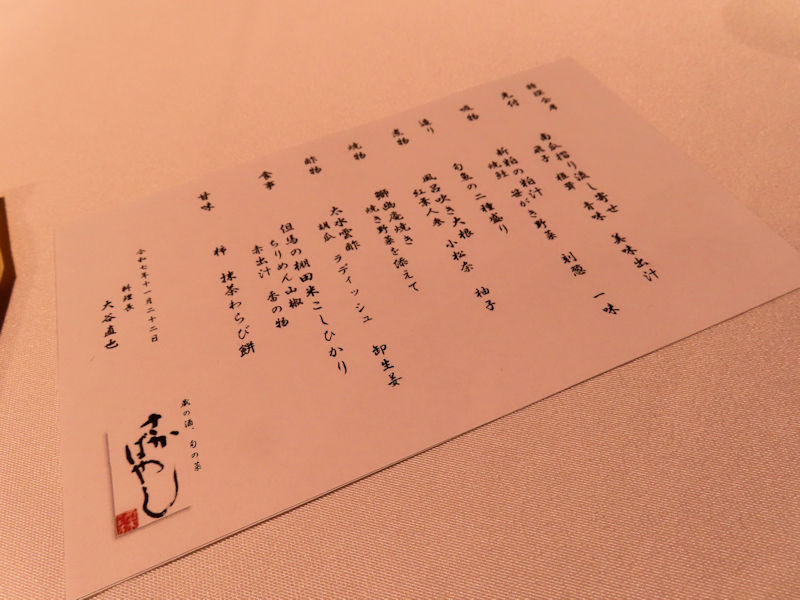 特撰会席
先付
南瓜摺り流し寄せ 美味出汁
帆子 椎茸 青味
吸物
新粕の粕汁 笹がき野菜 刻葱 一味
焼鮭
造り
旬魚の二種盛り
煮物
風呂吹き大根 小松菜 柚子
紅葉人参
焼物
鰤幽庵焼き
焼き野菜を添えて
酢物
太水雲酢 ラディッシュ 卸生姜
胡瓜
食事
但馬の棚田米こしひかり
ちりめん山椒
赤出汁 香の物
甘味
柿 抹茶わらび餅
令和七年十一月二十二日
料理長
大谷直也
蔵の酒、旬の菜
さかばやし